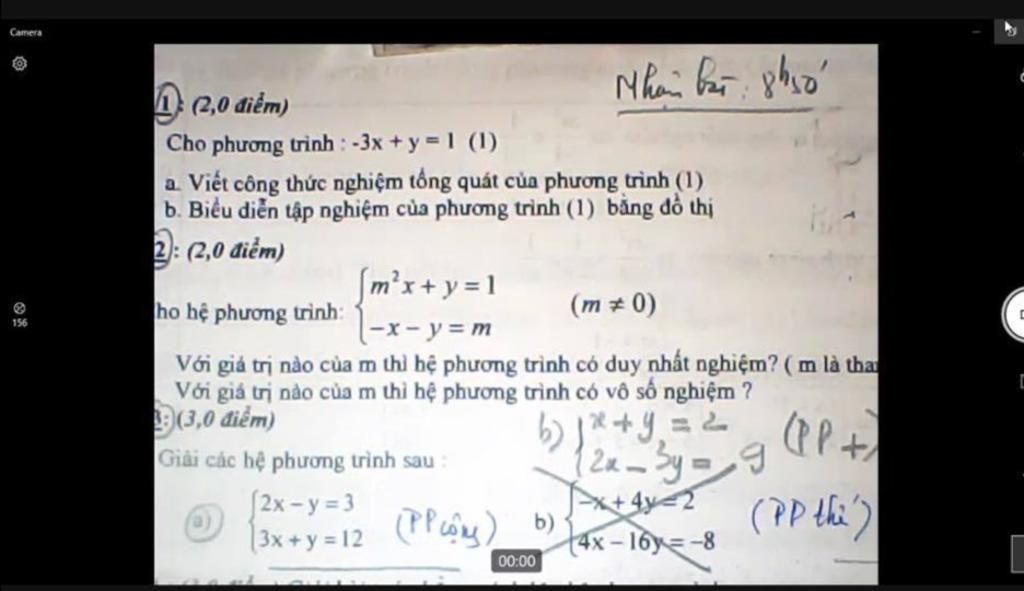 Camera
156
Nhận bài: 8h50'
1: (2,0 điểm)
Cho phương trình : -3x + y = 1 (1)
a. Viết công thức nghiệm tổng quát của phương trình (1)
b. Biểu diễn tập nghiệm của phương trình (1) bằng đồ thị
2: (2,0 điểm)
ho hệ phương trình: { m²x + y = 1
−x − y = m (m ≠ 0)
Với giá trị nào của m thì hệ phương trình có duy nhất nghiệm? ( m là tha
Với giá trị nào của m thì hệ phương trình có vô số nghiệm ?
3: (3,0 điểm)
b) { x + y = 2
2x − 3y = 9 (PP +)
Giải các hệ phương trình sau :
a) { 2x − y = 3
3x + y = 12 (PP cộng)
b) { −x + 4y = 2
4x − 16y = −8 (PP thế)
00:00